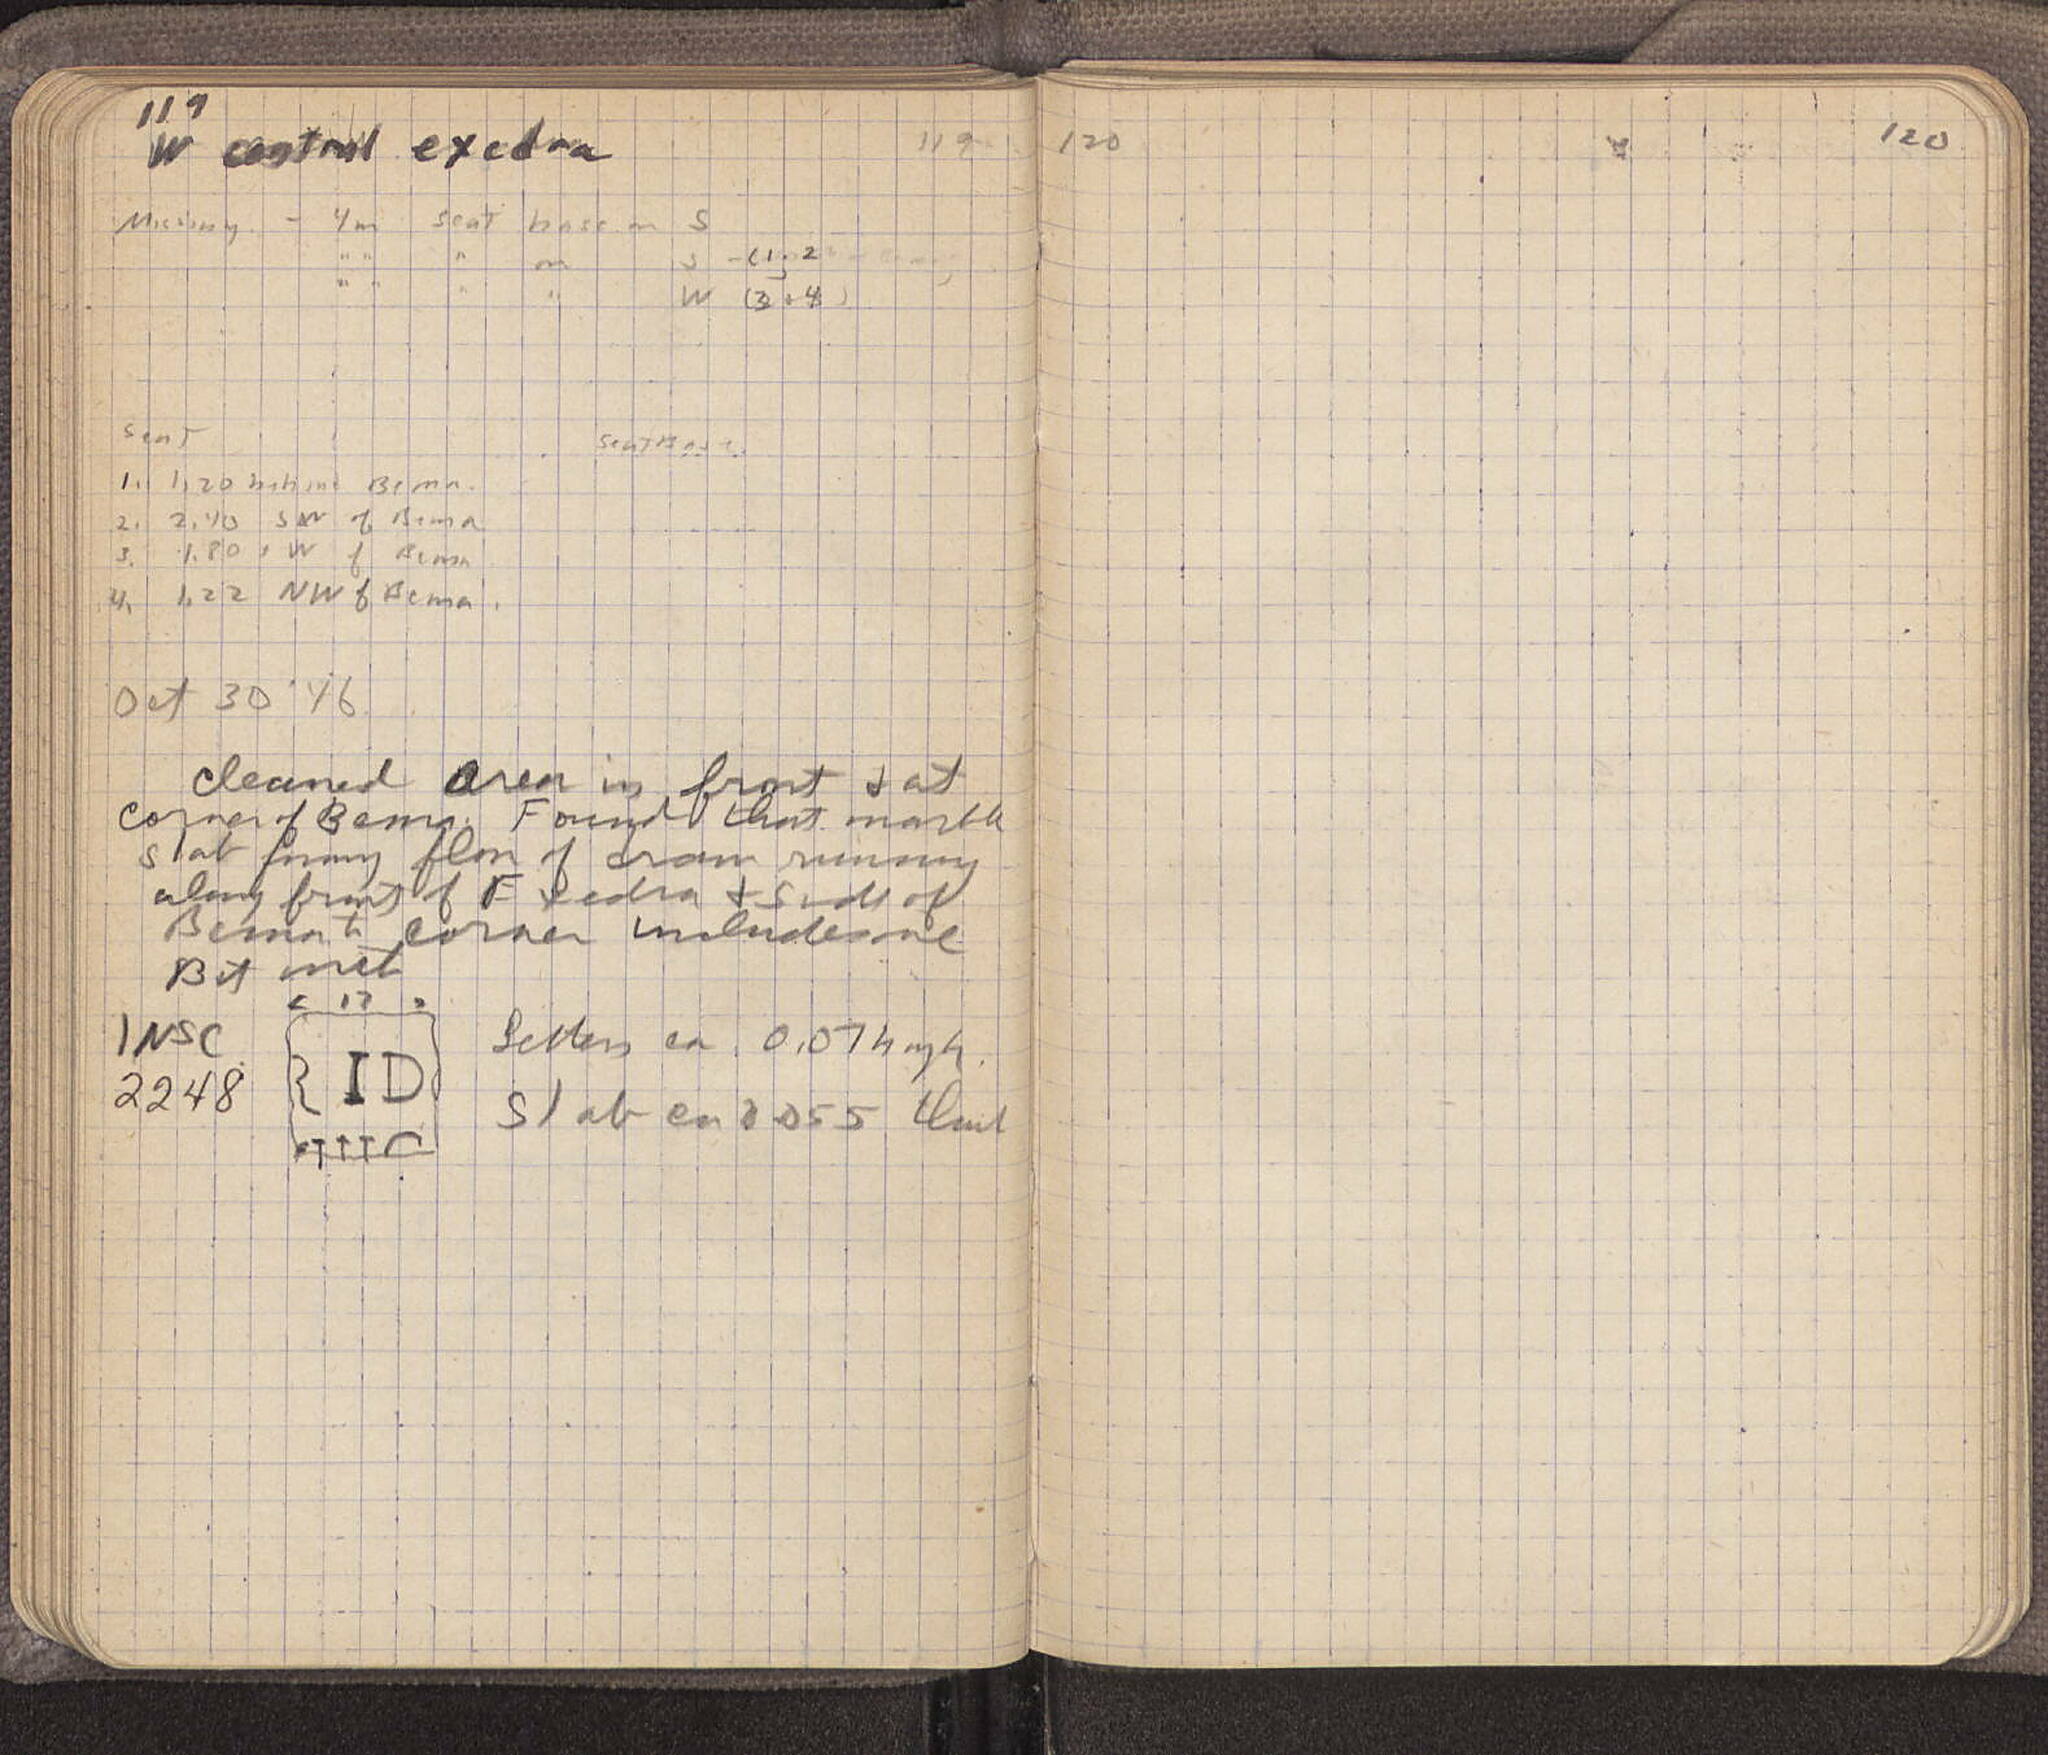 119
W central exedra 119
Missing - 4m seat base on S
" " " on S - (1, 2
" " " " W (3 + 4)
Seat Seat Base
1. 1.20 behind Bema.
2. 2.40 SW of Bema
3. 1.80 W of Bema
4. 1.22 NW of Bema.
Oct 30 '46
Cleaned area in front & at
corner of Bema. Found that marble
slab forming floor of drain running
along front of Exedra & side of
Bema at corner includes one
Bit inscb
INSC
2248
< 17 >
ID
Letters ca. 0.07 high.
Slab ca 0.055 thick
120 120